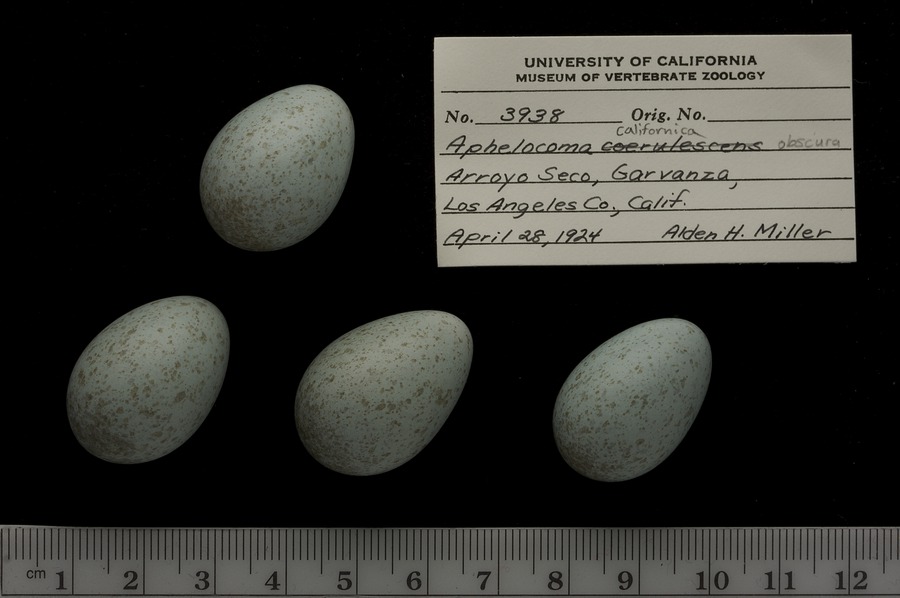 UNIVERSITY OF CALIFORNIA
MUSEUM OF VERTEBRATE ZOOLOGY
No. 3938 Orig. No.
californica
Aphelocoma coerulescens obscura
Arroyo Seco, Garvanza,
Los Angeles Co., Calif.
April 28, 1924 Alden H. Miller
cm 1 2 3 4 5 6 7 8 9 10 11 12